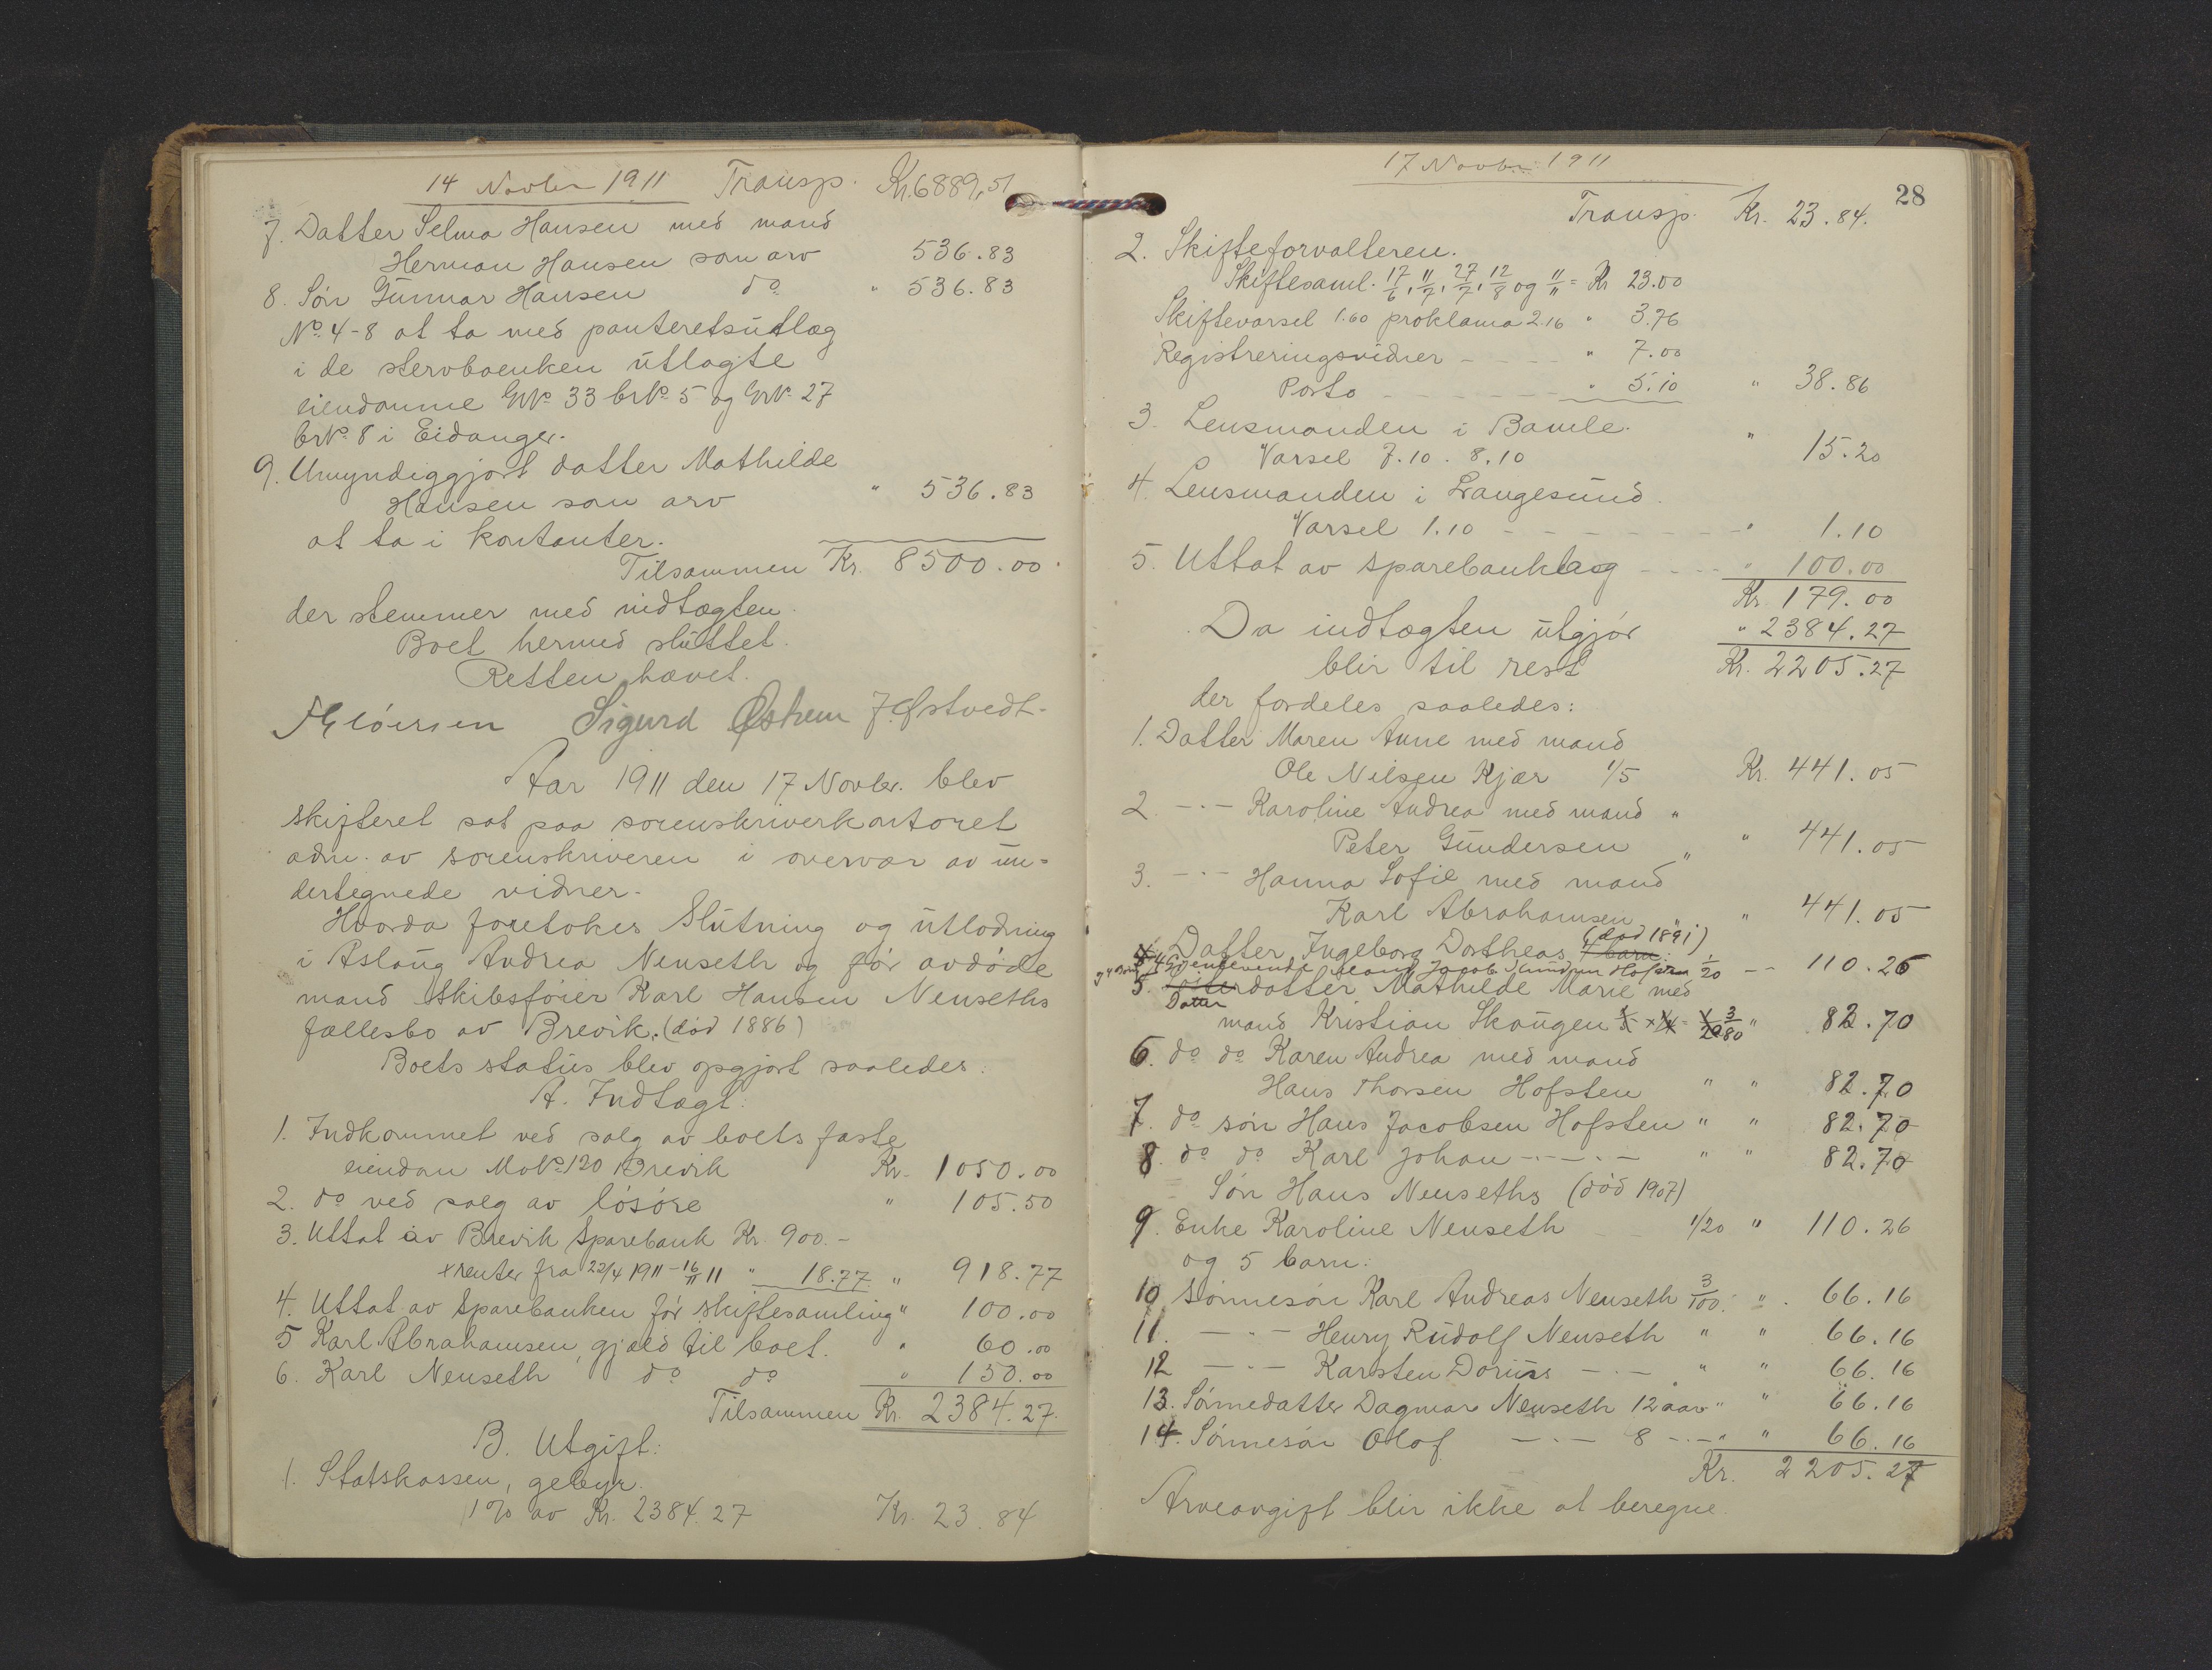 14 Novbr 1911 Transp. Kr. 6889,51
7. Datter Selma Hansen med mand
Herman Hansen som arv 536.83
8. Søn Gunnar Hansen do " 536.83
No. 4-8 at ta med panteretsutlæg
i de stervboenken utlagte
eiendomme GNo. 33 brNo. 5 og GrNo. 27
brNo. 8 i Eidanger.
9. Umyndiggjort datter Mathilde
Hansen som arv " 536.83
at ta i kontanter.
Tilsammen Kr. 8500.00
der stemmer med indtægten.
Boet hermed sluttet.
Retten hævet.
Sigurd Østrem J. Østvedt.
Aar 1911 den 17 Novbr. blev
skifteret sat paa sorenskriverkontoret
adm. av sorenskriveren i overvær av un-
dertegnede vidner.
Hvorda foretokes Slutning og utlodning
i Aslaug Andrea Neuseth og før avdøde
mand Skibsfører Karl Hansen Neuseths
fællesbo av Brevik. (død 1886)
Boets status blev opgjort saaledes:
A. Indtægt:
1. Indkommet ved salg av boets faste
eiendom MaNo. 120 Brevik Kr. 1050.00
2. do ved salg av løsøre " 105.50
3. Uttat av Brevik Sparebank Kr. 900.-
+ renter fra 22/4 1911 - 16/11 11 " 18.77 " 918.77
4. Uttat av Sparebanken før skiftesamling " 100.00
5 Karl Abrahamsen, gjæld til boet. " 60.00
6. Karl Neuseth, do do " 150.00
Tilsammen Kr. 2384.27.
B. Utgift:
1. Statskassen, gebyr.
1% av Kr. 2384.27 Kr. 23.84
17 Novbr. 1911
28
Transp. Kr. 23.84.
2. Skifteforvalteren.
Skiftesaml. 17/6, 11/7, 27/7, 12/8 og 11/11 = Kr 23.00
Skiftevarsel 1.60 proklama 2.16 " 3.76
Registreringsvidner - - - - " 7.00
Porto - - - - - - " 5.10 " 38.86
3. Lensmanden i Bamle.
Varsel 7.10. 8.10 " 15.20
4. Lensmanden i Langesund.
Varsel 1.10 - - - - - - " 1.10
5. Uttat av sparebanklæg - - - - " 100.00
Kr. 179.00
Da indtægten utgjør " 2384.27
blir til rest Kr. 2205.27
der fordeles saaledes:
1. Datter Maren Anne med mand
Ole Nilsen Kjær 1/5 Kr. 441.05
2. -"- Karoline Andrea med mand "
Peter Gundersen " 441.05
3. -"- Hanna Sofie med mand "
Karl Abrahamsen " " 441.05
Datter Ingeborg Dortheas (død 1891) 4 barn:
4 Gjenlevende mand Jacob Hofsten 1/20 -- 110.26
5. Datter datter Mathilde Marie med
mand Kristian Skaugen 1/5 x 1/4 = 1/20 3/80 " 82.70
6. do do Karen Andrea med mand
Hans Thorsen Hofsten " " 82.70
7. do søn Hans Jacobsen Hofsten " " 82.70
8. do do Karl Johan -"- -"- " " 82.70
Søn Hans Neuseths (død 1907)
9. Enke Karoline Neuseth - - 1/20 " 110.26
og 5 barn:
10 Sønnesøn Karl Andreas Neuseth 3/100. " 66.16
11. -"- Henry Rudolf Neuseth " " 66.16
12 -"- Karsten Dorius -"- " " 66.16
13. Sønnedatter Dagmar Neuseth 12 aar " " 66.16
14. Sønnesøn Olaf -"- 8 -"- " " 66.16
Kr. 2205.27
Arveavgift blir ikke at beregne.